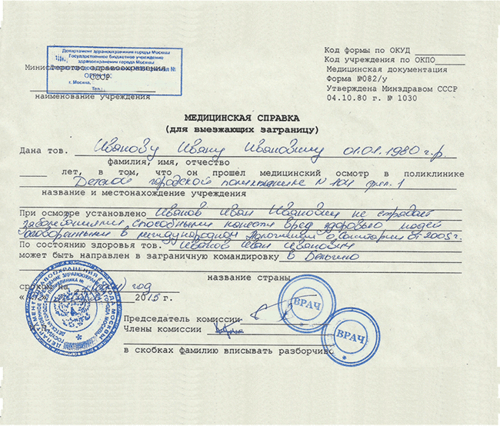 Департамент здравоохранения города Москвы
Государственное бюджетное учреждение
здравоохранения города Москвы
Министерство здравоохранения
СССР
г. Москва,
Тел.:
наименование учреждения
Код формы по ОКУД
Код учреждения по ОКПО
Медицинская документация
Форма №082/у
Утверждена Минздравом СССР
04.10.80 г. № 1030
МЕДИЦИНСКАЯ СПРАВКА
(для выезжающих заграницу)
Дана тов. Иванову Ивану Ивановичу 01.01.1980 г.р
фамилия, имя, отчество
лет, в том, что он прошел медицинский осмотр в поликлинике
Детской городской поликлинике №
название и местонахождение учреждения
При осмотре установлено Иванов Иван Иванович не страдает
заболеваниями способными нанести вред здоровью людей
в международном от 2005г.
По состоянию здоровья тов. Иванов Иван Иванович
может быть направлен в заграничную командировку в
название страны
сроком на год
2015 г.
Председатель комиссии
Члены комиссии
в скобках фамилию вписывать разборчиво
ВРАЧ
ВРАЧ